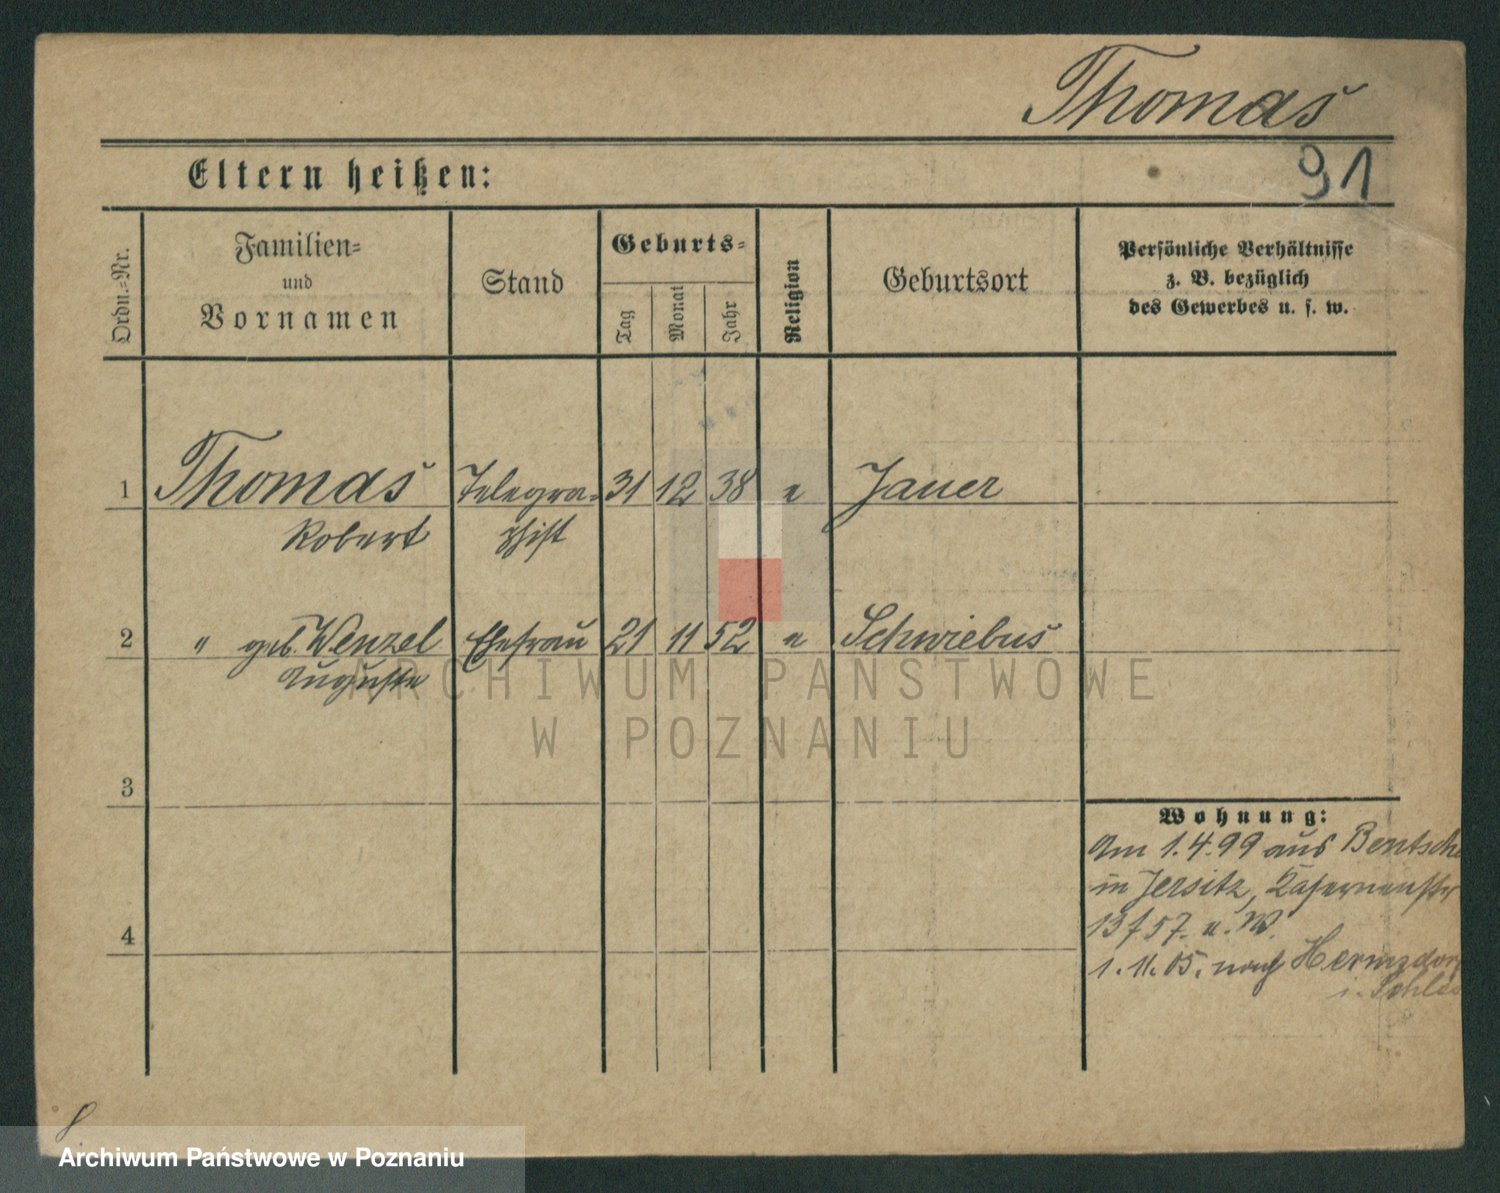 Thomas
91
Eltern heißen:
Ordn.=Nr.
Familien=
und
Vornamen
Stand
Geburts=
Tag
Monat
Jahr
Religion
Geburtsort
Persönliche Verhältnisse
z. B. bezüglich
des Gewerbes u. s. w.
1 Thomas Telegra= 31 12 38 e Jauer
Robert phist
2 " geb. Wenzel Ehefrau 21 11 52 e Schwiebus
Auguste
ARCHIWUM PAŃSTWOWE
W POZNANIU
3
Wohnung:
Am 1.4.99 aus Bentsche
in Jersitz, Kasernenstr
13 f 57. u. W.
4
1.11.05. nach Hermsdorf
i. Schles
Archiwum Państwowe w Poznaniu